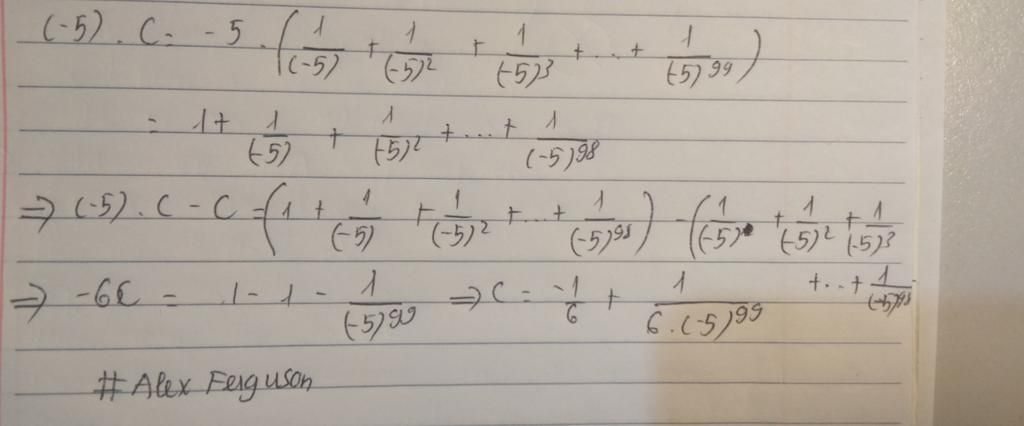 (-5) . C = -5 . (1/(-5) + 1/(-5)² + 1/(-5)³ + ... + 1/(-5)⁹⁹)
= 1 + 1/(-5) + 1/(-5)² + ... + 1/(-5)⁹⁸
⇒ (-5) . C - C = (1 + 1/(-5) + 1/(-5)² + ... + 1/(-5)⁹⁸) - (1/(-5) + 1/(-5)² + 1/(-5)³
+ ... + 1/(-5)⁹⁹
⇒ -6C = 1 - 1 - 1/(-5)⁹⁹ ⇒ C = -1/6 + 1/(6.(-5)⁹⁹)
#Alex Ferguson